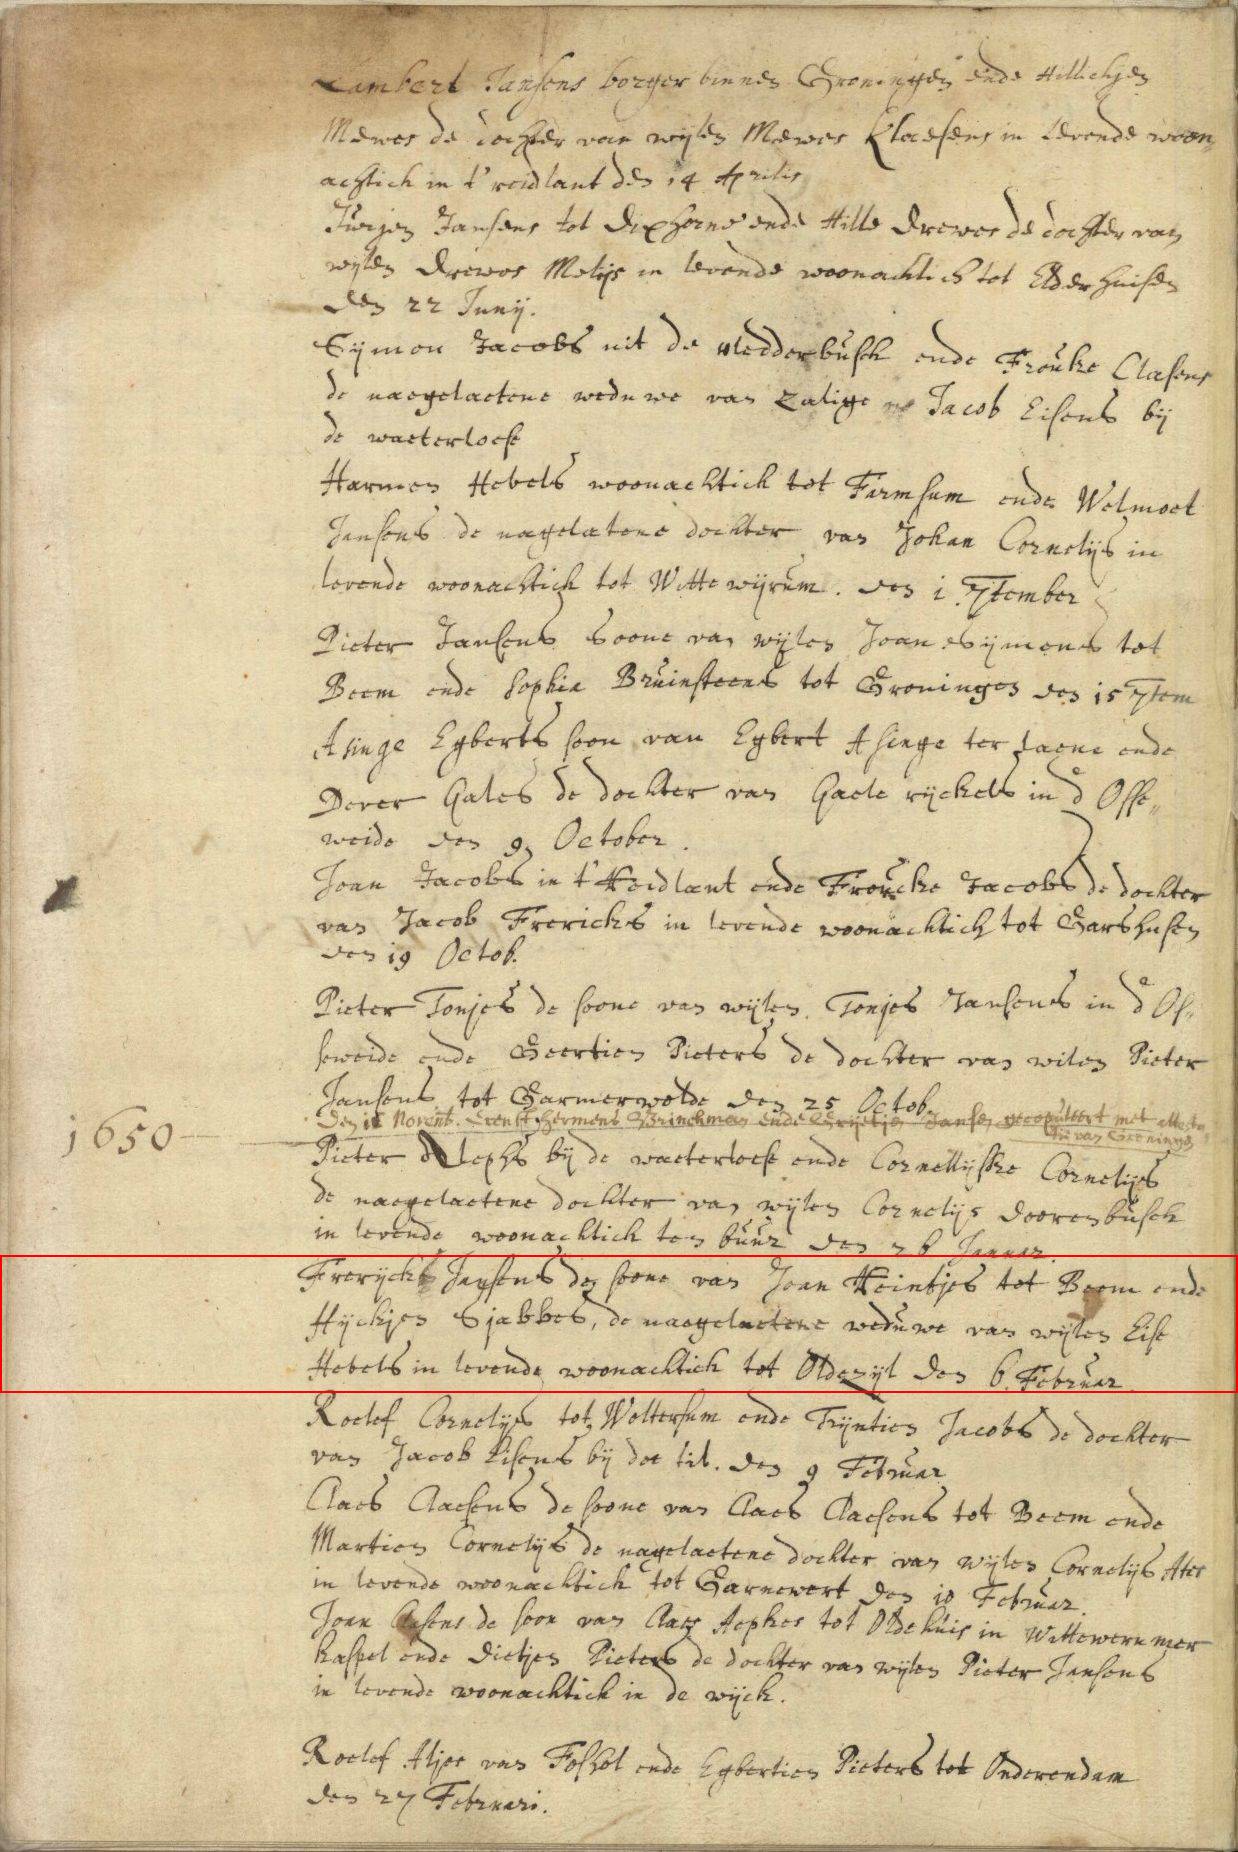 Lambert Jansens borger binnen Groningen ende Hillichjen
Mewes de dochter van wijlen Mewes Klaesens in levende woon„
achtich in t' reidlant den 14 Aprilis
Jurjen Jansens tot Dixhorne ende Hille Drewes de dochter van
wijlen Drewes Melijs in levende woonachtich tot Elderhuisen
den 22 Junij.
Sijmon Jacobs uit de Medderbusch ende Frouke Clasens
de naegelaetene weduwe van zalige Jacob Eisens bij
de waeterloese
Harmen Hebels woonachtich tot Farmsum ende Welmoet
Jansens de nagelatene dochter van Johan Cornelijs in
levende woonachtich tot Wittewijrum. den 1. 7tember
Pieter Jansens soone van wijlen Joan Sijmens tot
Beem ende Sophia Bruinsteens tot Groningen den 15 7tem
Asinge Egberts soon van Egbert Asinge ter Laene ende
Dever Gales de dochter van Gaele rijckels in d Osse„
weide den 9 October.
Joan Jacobs in t' Reidlant ende Froucke Jacobs de dochter
van Jacob Frericks in levende woonachtich tot Garshusen
den 19 Octob.
Pieter Tonjes de soone van wijlen Tonjes Jansens in d Os„
seweide ende Geertien Pieters de dochter van wilen Pieter
Jansens tot Garmerwolde den 25 Octob.
Den 11 Novemb. Erenst Hermens Brinckman ende Grijetjen Jansen gecopuleert met attesta
tie van Groningen
1650
Pieter Alephs bij de waeterloese ende Cornellijske Cornelijs
de naegelaetene dochter van wijlen Cornelijs Doorenbusch
in levende woonachtich ten buur den 26 Januar.
Frerijck Jansens de soone van Joan Heintjes tot Beem ende
Hijckjen Sjabbes, de naegelaetene weduwe van wijlen Eise
Hebels in levende woonachtich tot Oldezijl den 6. Februar
Roelef Cornelijs tot Woltersum ende Trijntien Jacobs de dochter
van Jacob Eisens bij de til. den 9 Februar
Claes Claesens de soone van Claes Claesens tot Beem ende
Martien Cornelijs de nagelaetene dochter van wijlen Cornelijs Ates
in levende woonachtich tot Garnewert den 10 Februar.
Joan Clasens de soon van Claes Aepkes tot Oldehuis in Wittewerummer
kaspel ende Dietjen Pieters de dochter van wijlen Pieter Jansens
in levende woonachtich in de wijck.
Roelef Aljes van Foshol ende Egbertien Pieters tot Onderendam
den 27 Februari.